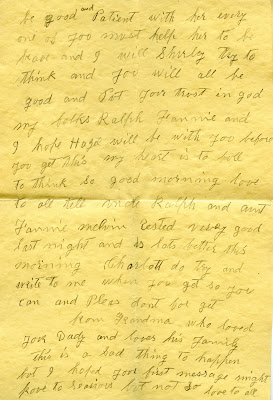 be good and Patient with her every
one of you must help her to be
brave and I will Shirley try to
think and you will all be
good and Put your trust in god
my folks Ralph Fannie and
I hope Hazel will be with you before
you get this my heart is to full
to think so good morning love
to all tell uncle Ralph and aunt
Fannie melvin rested verey good
last night and is lots better this
morning Charlott do try and
write to me when you get so you
can and Pleas dont for get
from Grandma who loved
your Dady and loves his family
this is a Sad thing to happen
but I hoped your first message might
prove to reasons but not so love to all